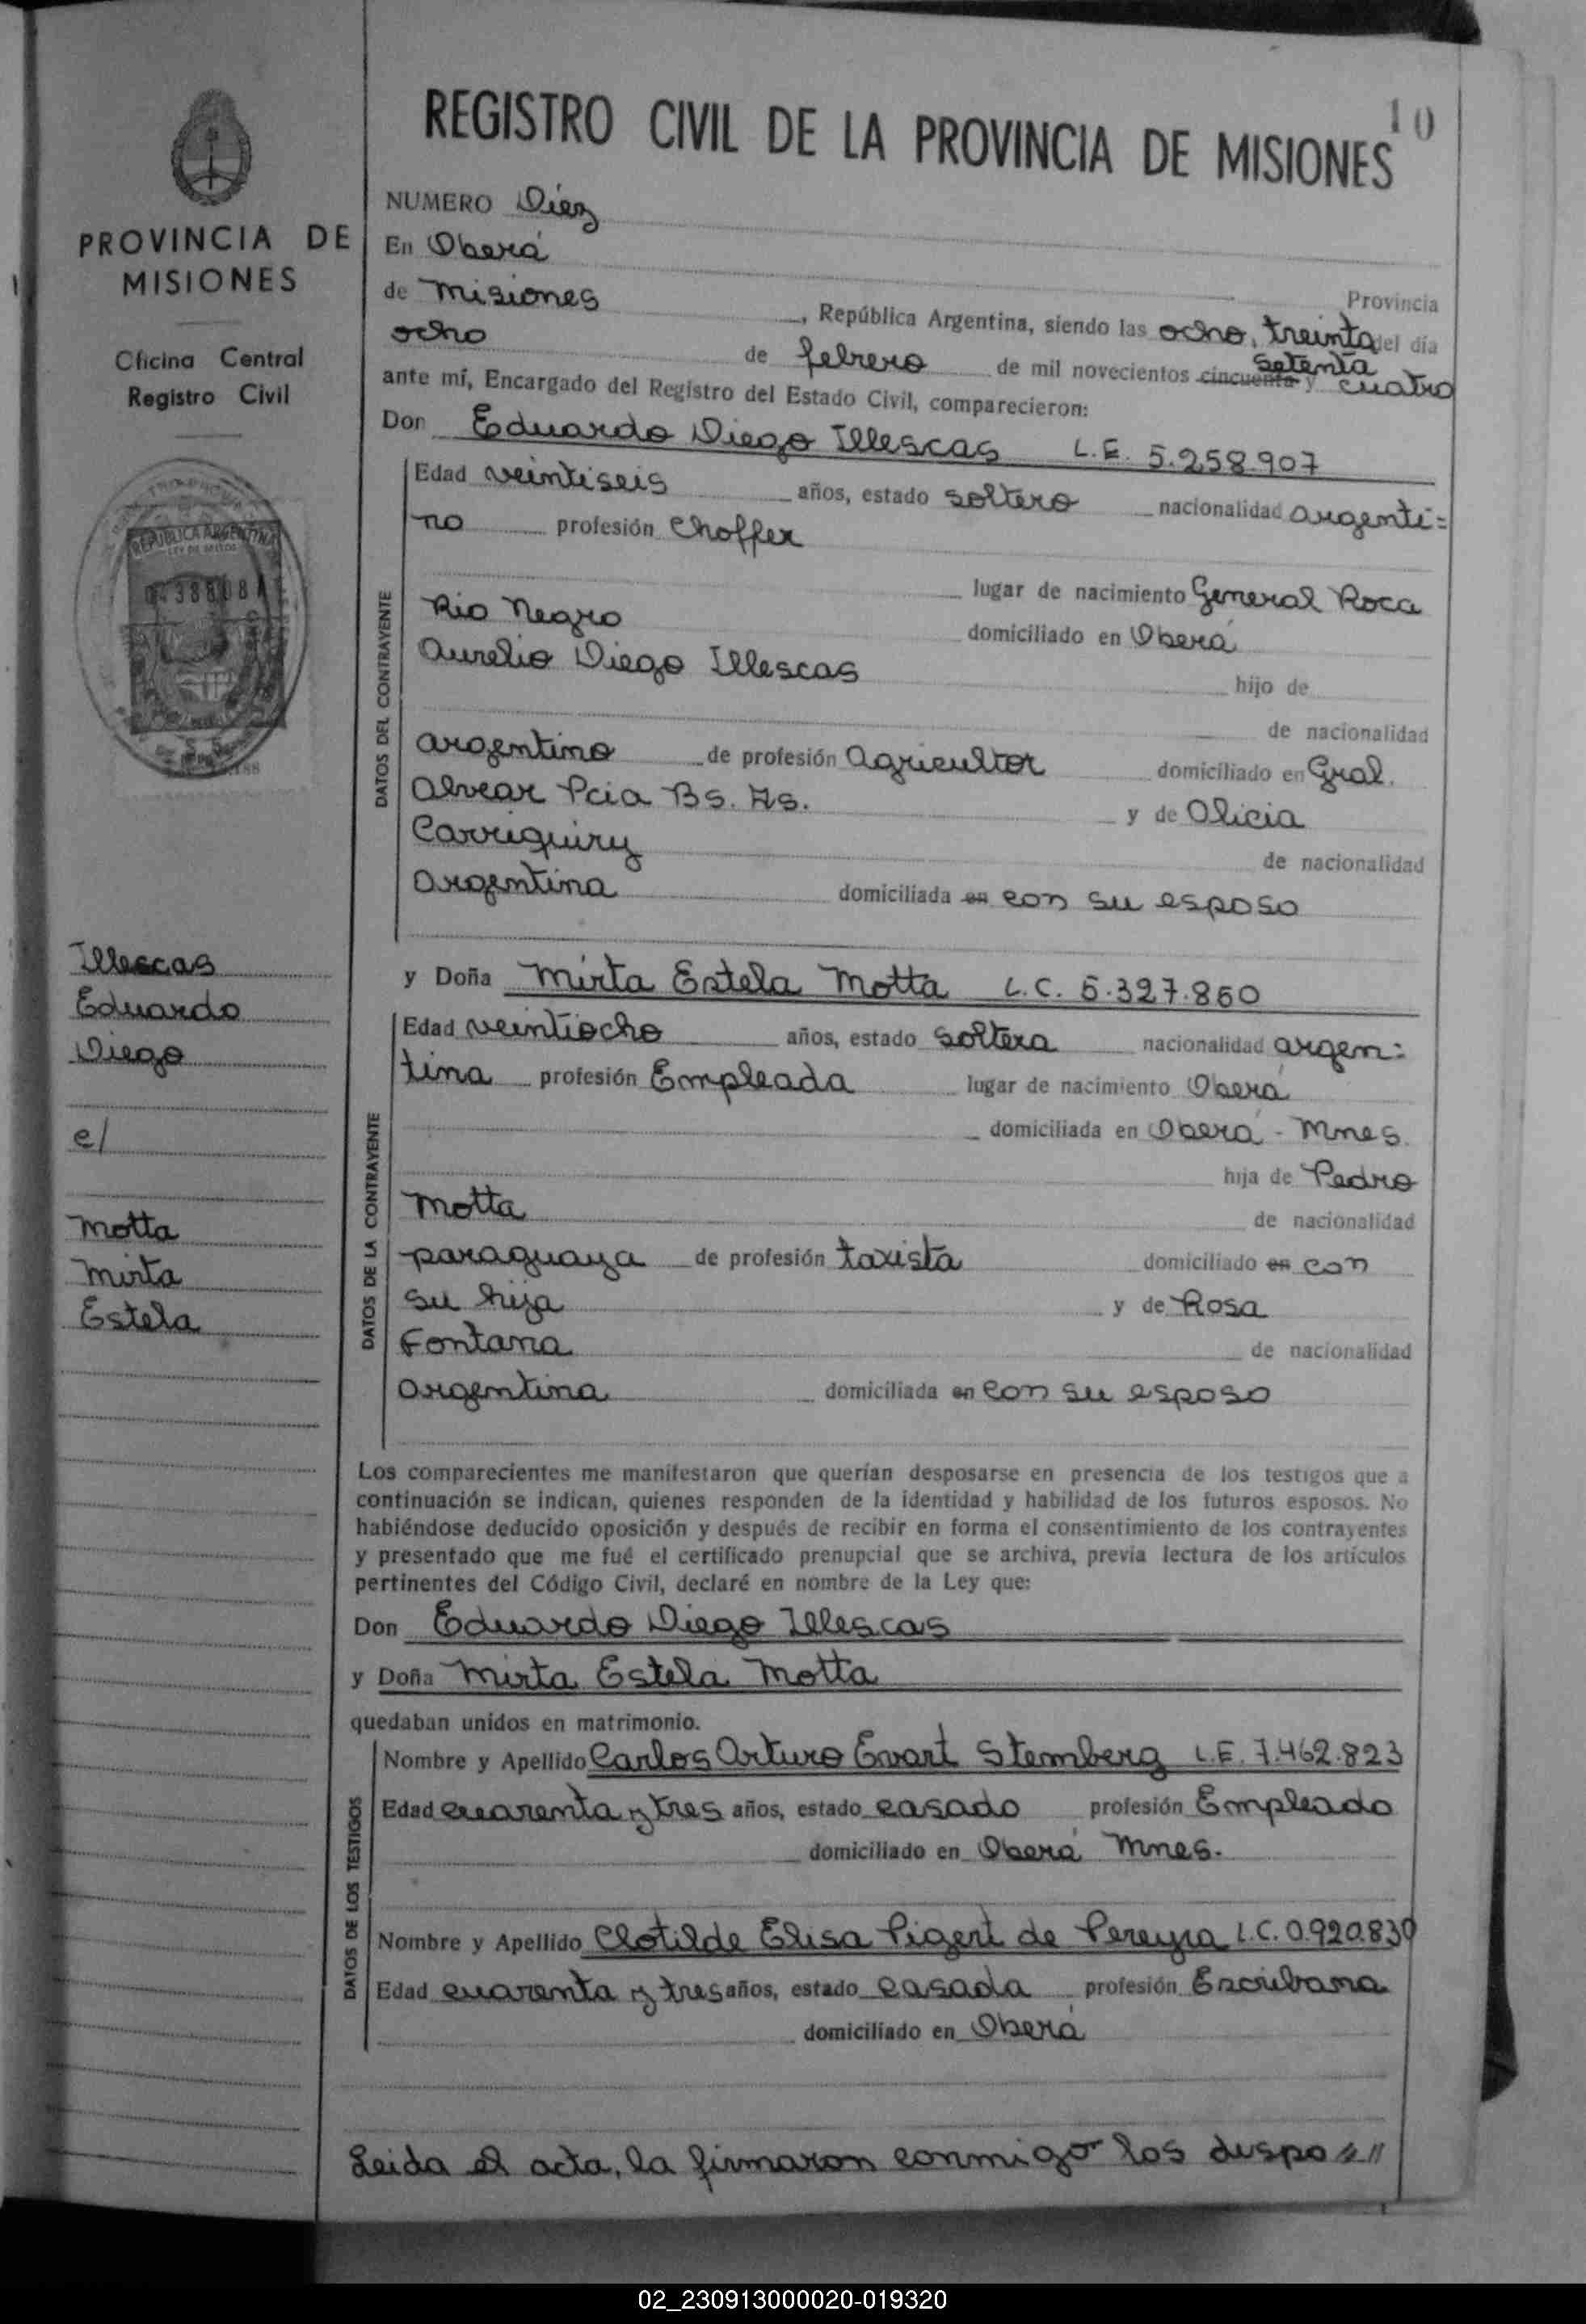 10
REGISTRO CIVIL DE LA PROVINCIA DE MISIONES
PROVINCIA DE
MISIONES
Oficina Central
Registro Civil
REPUBLICA ARGENTINA
Illescas
Eduardo
Diego
c/
Motta
Mirta
Estela
NUMERO Diez
En Oberá
Provincia
de Misiones, República Argentina, siendo las ocho, treinta del día
ocho de febrero de mil novecientos cincuenta setenta y cuatro
ante mí, Encargado del Registro del Estado Civil, comparecieron:
Don Eduardo Diego Illescas L.E. 5.258.907
DATOS DEL CONTRAYENTE
Edad veintiseis años, estado soltero nacionalidad argenti=
no profesión Choffer
lugar de nacimiento General Roca
Rio Negro domiciliado en Oberá
hijo de
Aurelio Diego Illescas
de nacionalidad
argentino de profesión Agricultor domiciliado en Gral.
Alvear Pcia Bs. As. y de Alicia
Carriquiry de nacionalidad
Argentina domiciliada en con su esposo
y Doña Mirta Estela Motta L.C. 5.327.860
DATOS DE LA CONTRAYENTE
Edad veintiocho años, estado soltera nacionalidad argen=
tina profesión Empleada lugar de nacimiento Oberá
domiciliada en Oberá - Mnes.
hija de Pedro
Motta de nacionalidad
paraguaya de profesión taxista domiciliado en con
su hija y de Rosa
Fontana de nacionalidad
Argentina domiciliada en con su esposo
Los comparecientes me manifestaron que querían desposarse en presencia de los testigos que a
continuación se indican, quienes responden de la identidad y habilidad de los futuros esposos. No
habiéndose deducido oposición y después de recibir en forma el consentimiento de los contrayentes
y presentado que me fué el certificado prenupcial que se archiva, previa lectura de los artículos
pertinentes del Código Civil, declaré en nombre de la Ley que:
Don Eduardo Diego Illescas
y Doña Mirta Estela Motta
quedaban unidos en matrimonio.
DATOS DE LOS TESTIGOS
Nombre y Apellido Carlos Arturo Ewart Stemberg L.E. 7.462.823
Edad cuarenta y tres años, estado casado profesión Empleado
domiciliado en Oberá Mnes.
Nombre y Apellido Clotilde Elisa Pigert de Pereyra L.C. 0.920.830
Edad cuarenta y tres años, estado casada profesión Escribana
domiciliado en Oberá
Leida el acta, la firmaron conmigo los despo
02_230913000020-019320